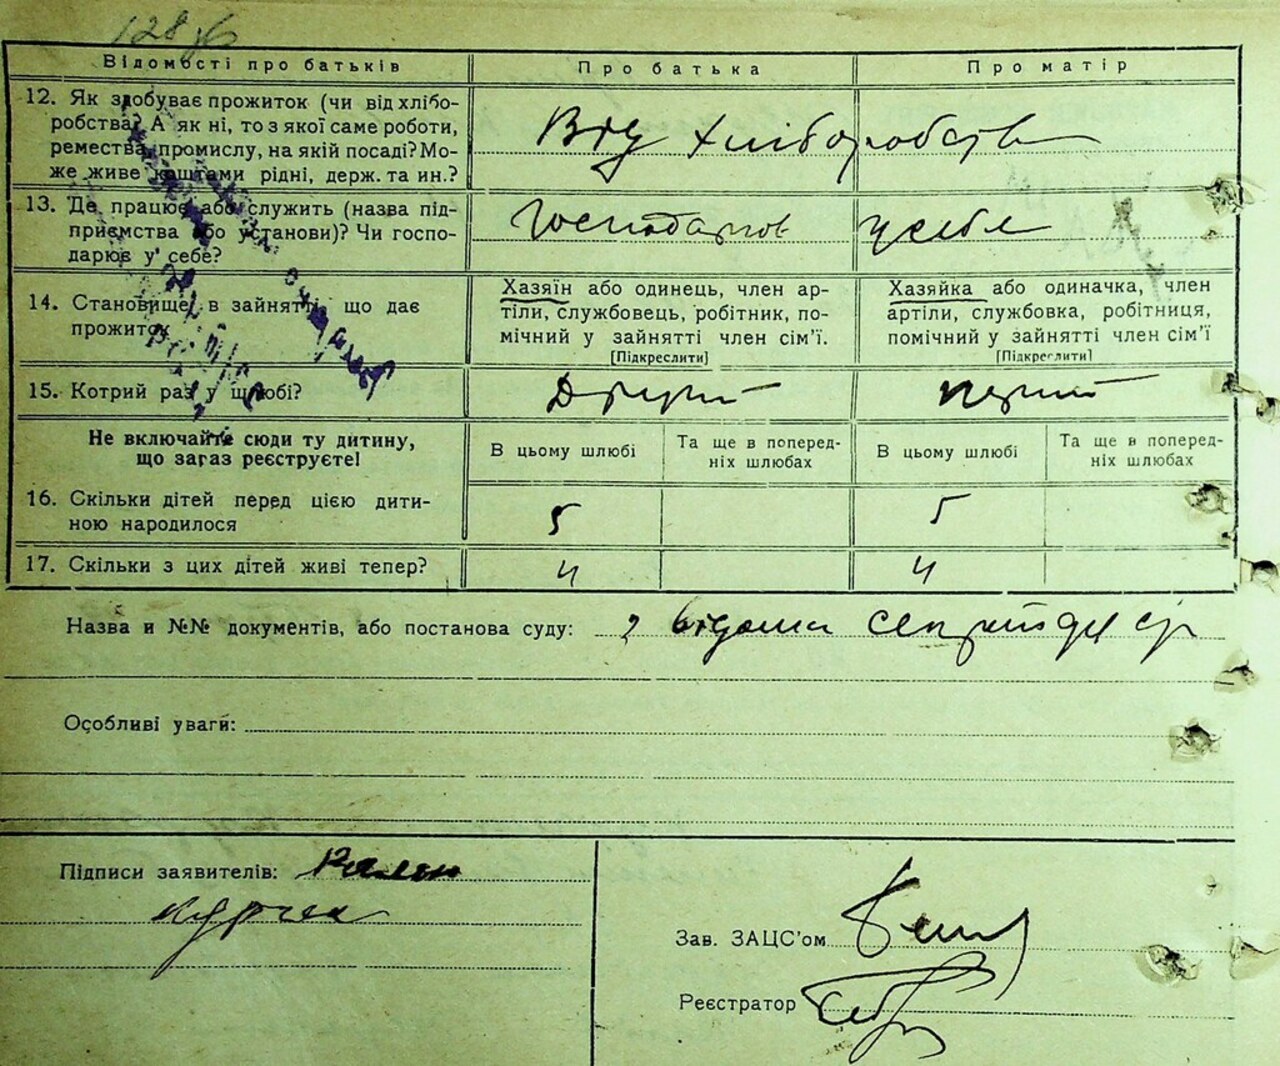 128 зв
Відомості про батьків
Про батька
Про матір
12. Як здобуває прожиток (чи від хлібо-
робства? А як ні, то з якої саме роботи,
ремества, промислу, на якій посаді? Мо-
же живе коштами рідні, держ. та ин.?
Від хліборобств
13. Де працює або служить (назва під-
приємства або установи)? Чи госпо-
дарює у себе?
Господарюв у себе
14. Становище в зайнятті, що дає
прожиток
Хазяїн або одинець, член ар-
тіли, службовець, робітник, по-
мічний у зайнятті член сім’ї.
[Підкреслити]
Хазяйка або одиначка, член
артіли, службовка, робітниця,
помічний у зайнятті член сім’ї
[Підкреслити]
15. Котрий раз у шлюбі?
Другий
перший
Не включайте сюди ту дитину,
що загаз реєструєте!
В цьому шлюбі
Та ще в поперед-
ніх шлюбах
В цьому шлюбі
Та ще в поперед-
ніх шлюбах
16. Скільки дітей перед цією дити-
ною народилося
5
5
17. Скільки з цих дітей живі тепер?
4
4
Назва и №№ документів, або постанова суду: з відома
Особливі уваги:
Підписи заявителів:
Зав. ЗАЦС’ом
Реєстратор